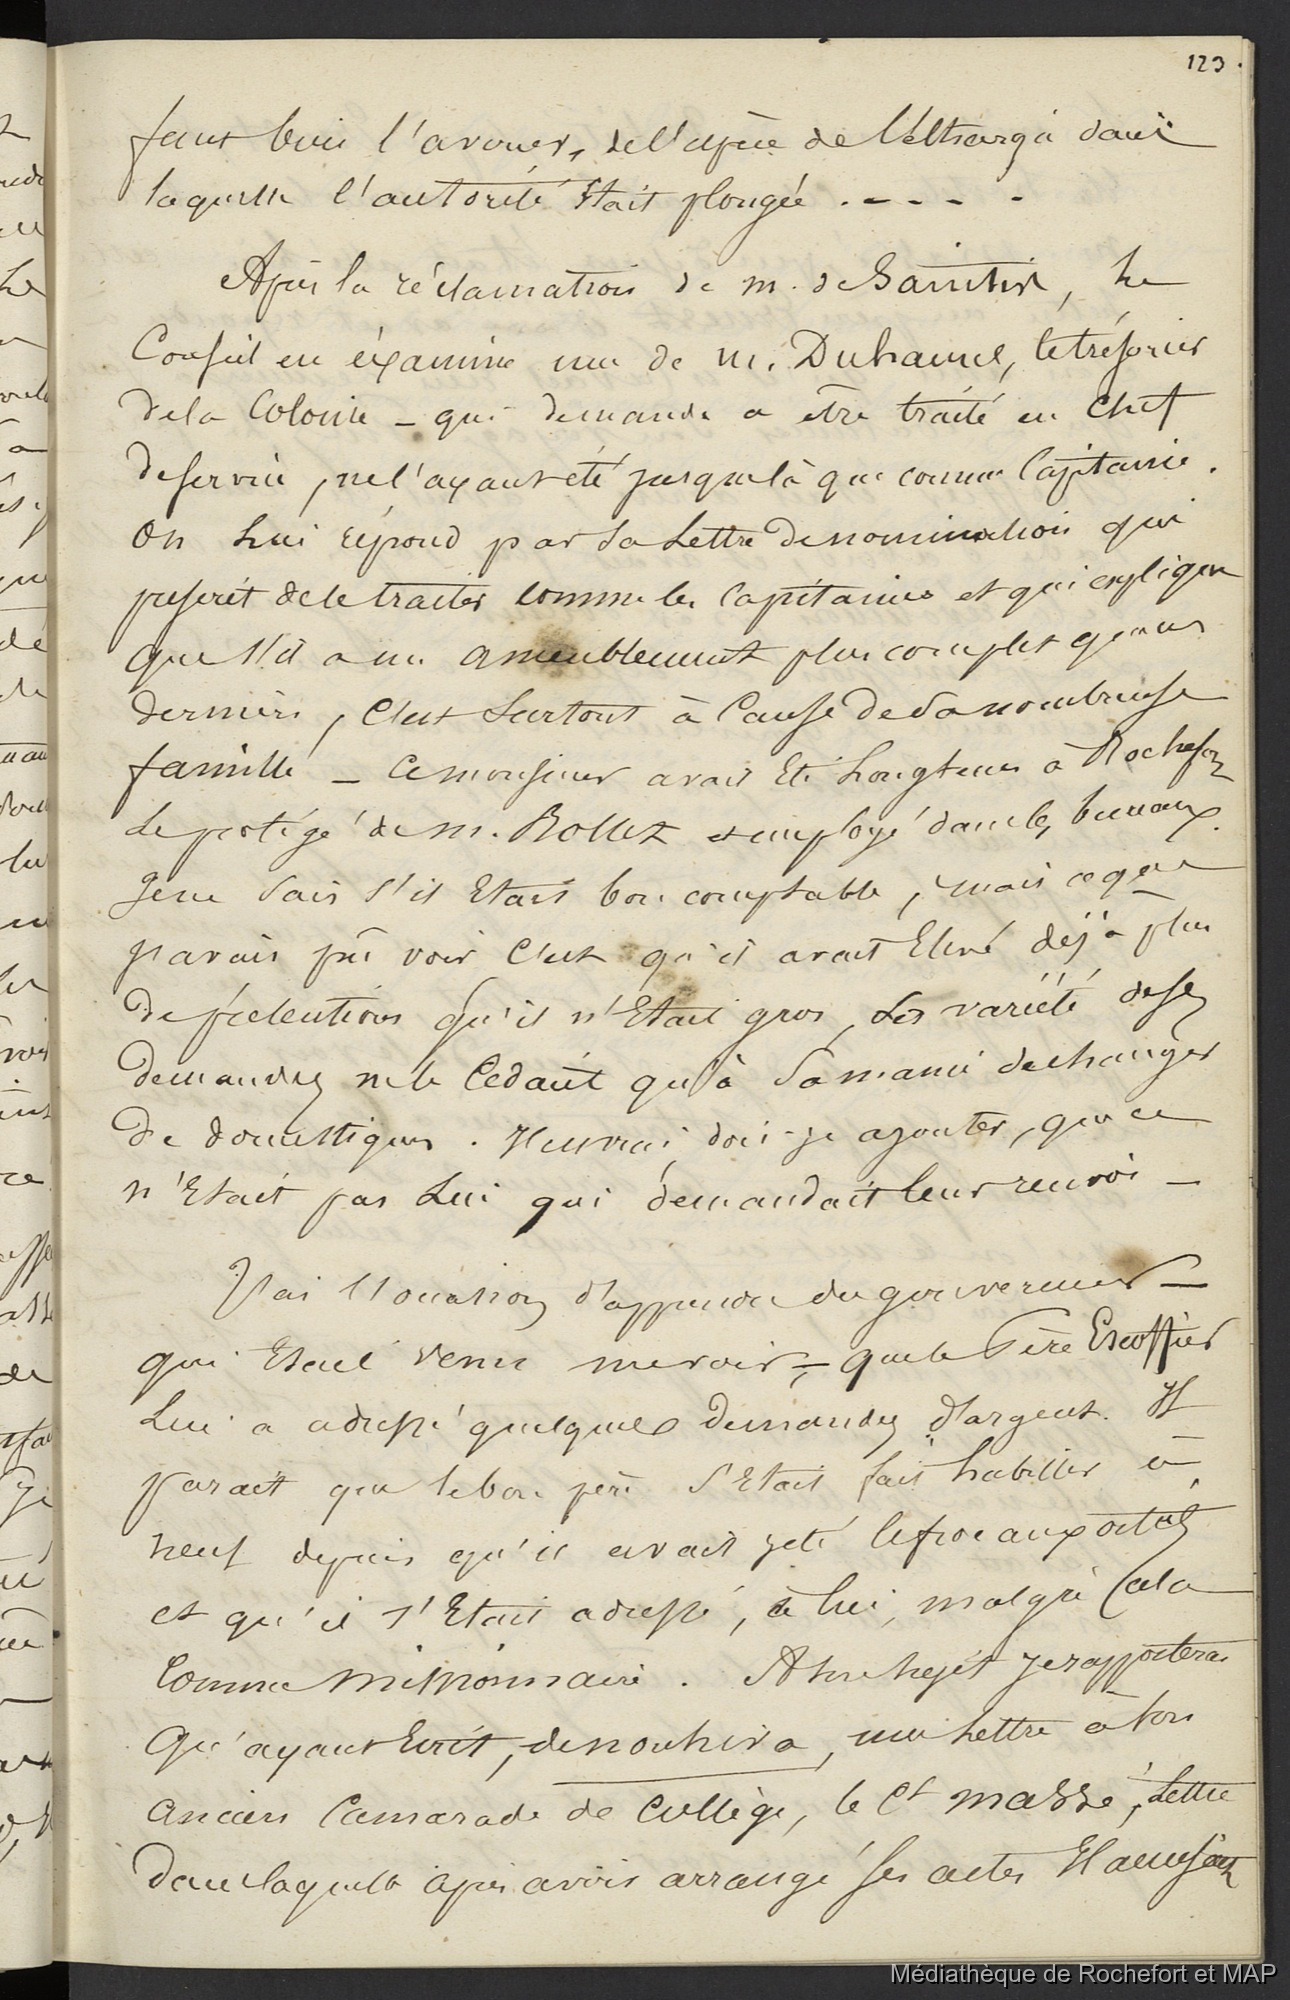 123.
faut bien l'avouer, de l'espèce de Léthargie dans
laquelle l'autorité Etait plongée . - - - -
Après la réclamation de m. de Saintin, Le
Conseil en éxamine une de m. Duhamel, le trésorier
de la Colonie _ qui demande a être traité en Chef
de service, ne l'ayant été jusque là que comme Capitaine.
On Lui répond par sa Lettre de nomination qui
prescrit de le traiter comme les Capitaines et qui explique
que s'il a un ameublement plus complet que ces
derniers, C'est Surtout à Cause de Sa nombreuse
famille _ Ce monsieur avait Eté Longtems à Rochefort
Le protégé de m. Rollet et employé dans les bureaux.
Je ne Sais s'il Etait bon comptable, mais ce que
j'avais pu voir C'est qu'il avait Elevé déjà plus
de prétentions qu'il n'Etait gros, La variété de ses
demandes ne le Cédait qu'à Sa manie de changer
de domestiques. Il est vrai, dois-je ajouter, que ce
n'Etait pas Lui qui demandait leur renvoi _
J'ai l'occasion d'apprendre du gouverneur _
qui Etait venu me voir _, que le Père Escoffier
Lui a adressé quelques demandes d'argent. Il
parait que le bon père S'Etait fait habiller à
neuf depuis qu'il avait jeté le froc aux orties
et qu'il s'Etait adressé, à lui, malgré Cela
Comme missionnaire. A son Sujet je rapporterai
Qu'ayant Ecrit, de noukiva, une Lettre à son
ancien Camarade de Collège, le Ct massé, Lettre
dans laquelle après avoir arrangé ses actes